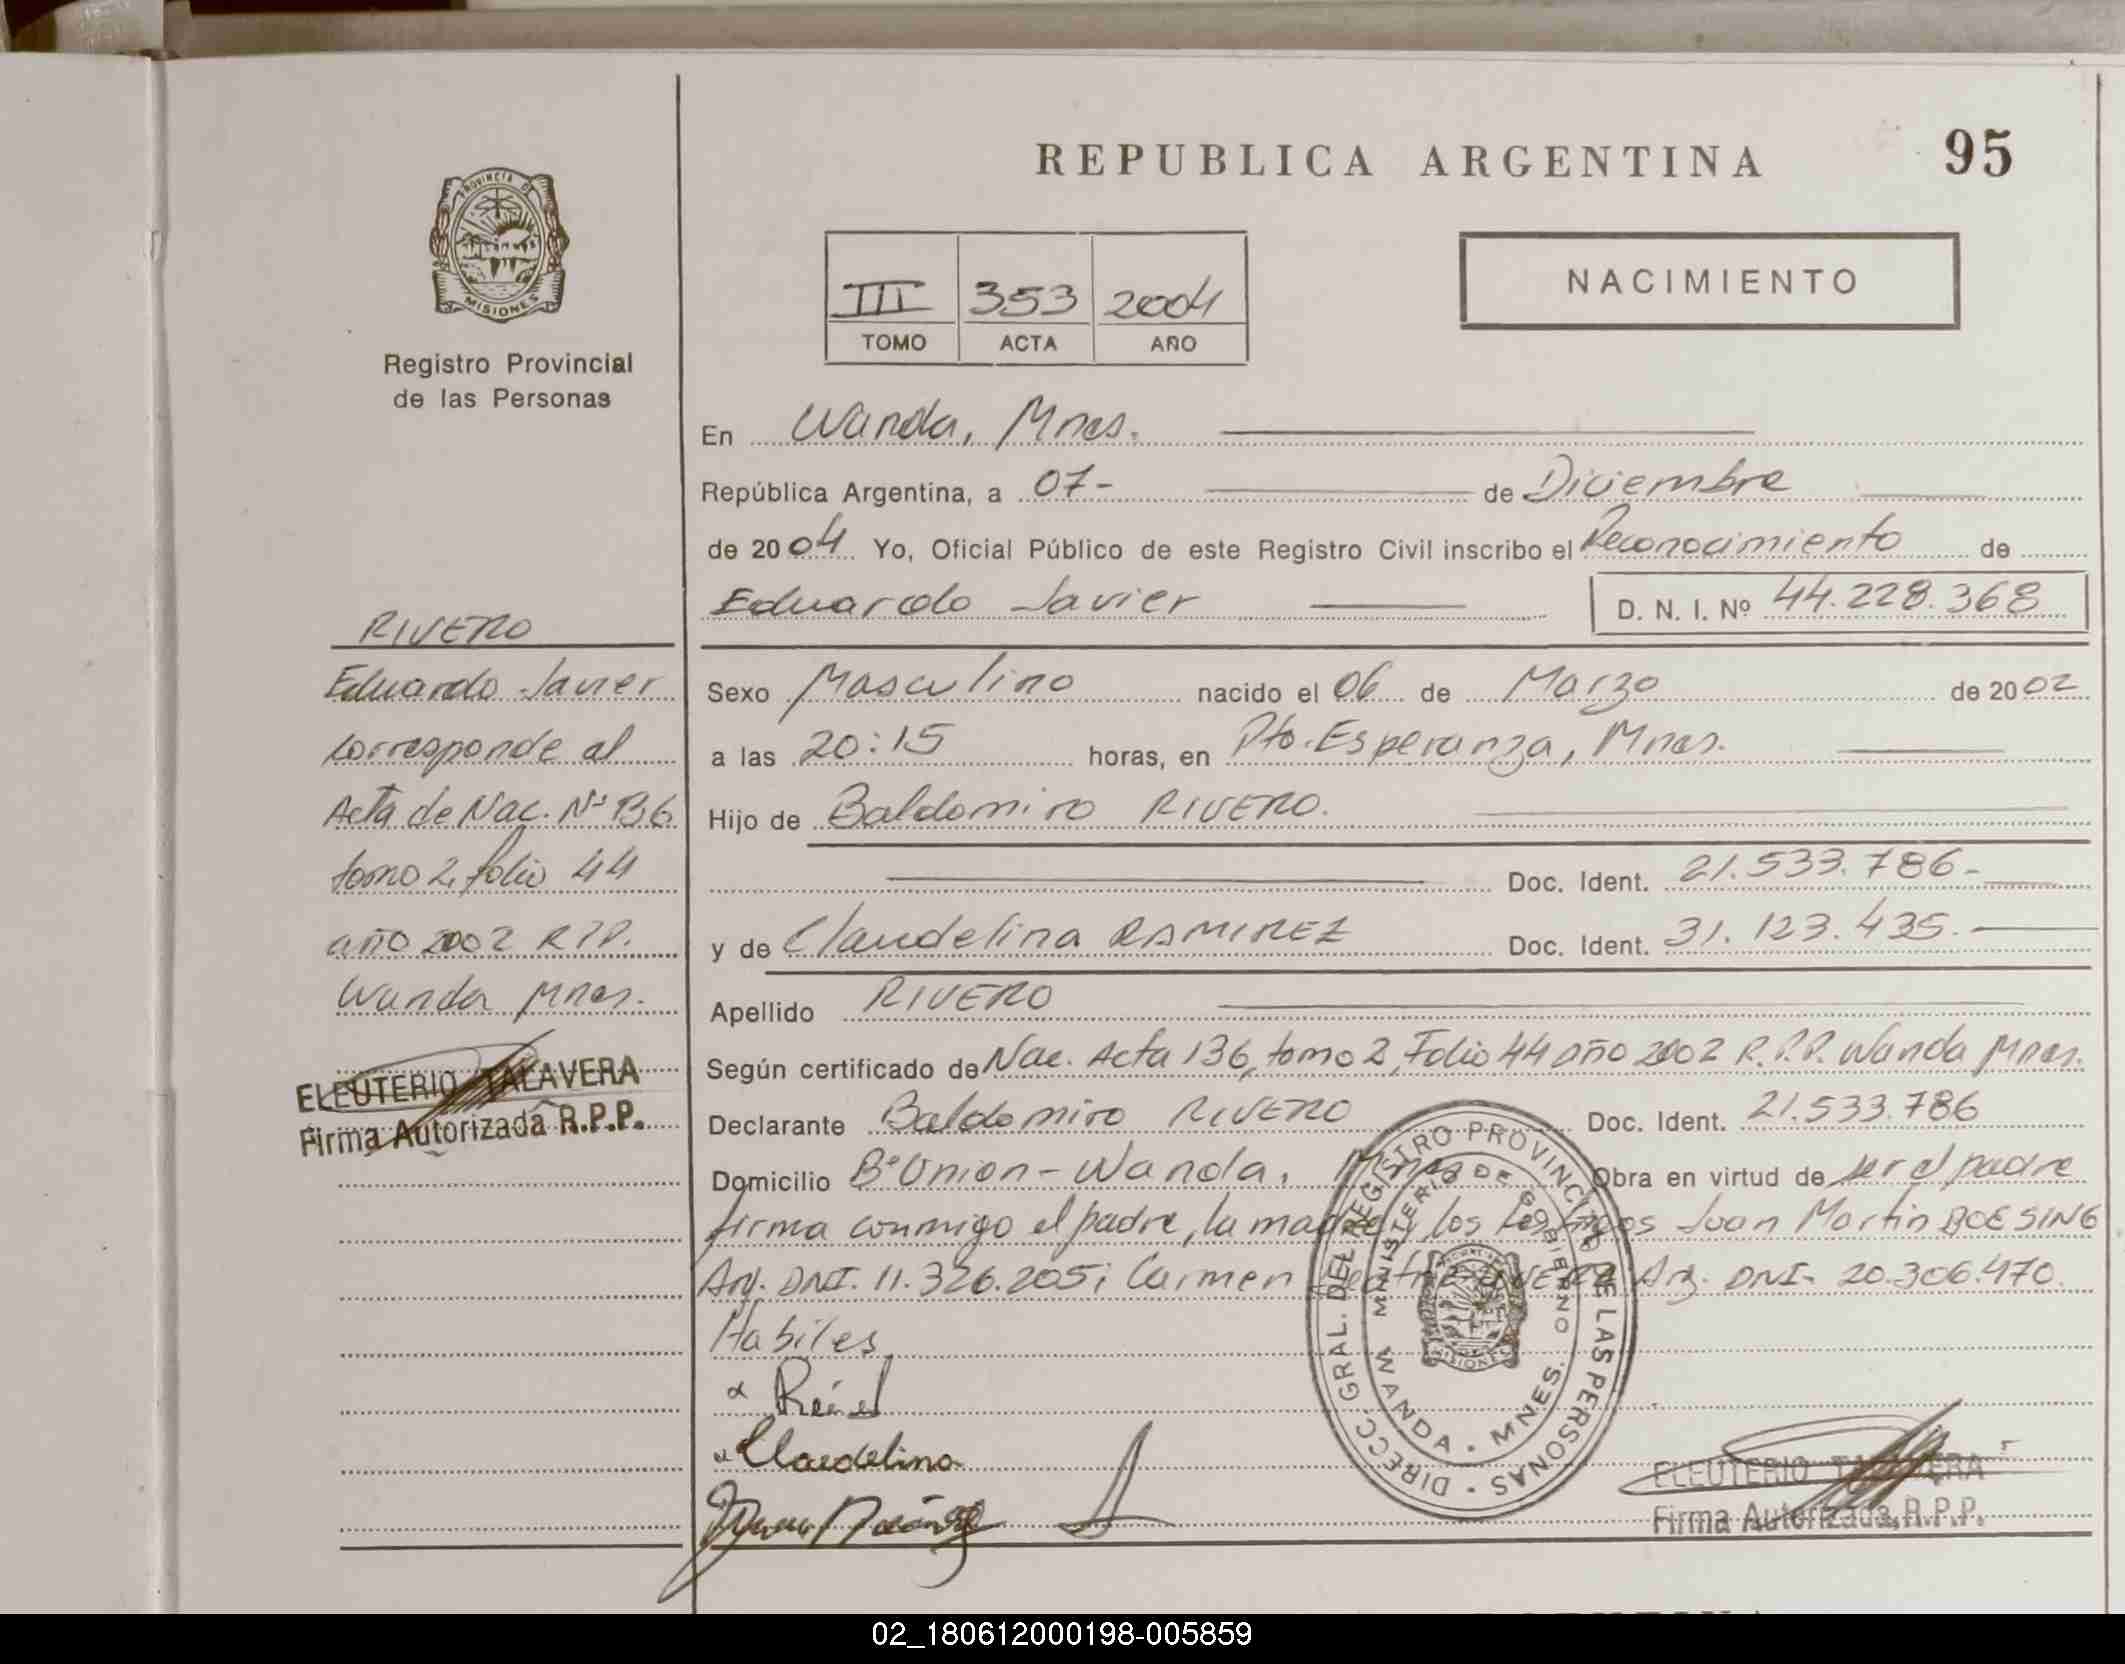 REPUBLICA ARGENTINA 95
PROVINCIA DE
MISIONES
Registro Provincial
de las Personas
III 353 2004
TOMO ACTA AÑO
NACIMIENTO
En Wanda, Mnes.
República Argentina, a 07- de Diciembre
de 2004 Yo, Oficial Público de este Registro Civil inscribo el Reconocimiento de
Eduardo Javier D. N. I. Nº 44.228.368
Sexo Masculino nacido el 06 de Marzo de 2002
a las 20:15 horas, en Pto. Esperanza, Mnes.
Hijo de Baldomiro RIVERO.
Doc. Ident. 21.533.786-
y de Claudelina RAMIREZ Doc. Ident. 31.123.435.
Apellido RIVERO
Según certificado de Nac. Acta 136, tomo 2, Folio 44 año 2002 R.P.P. Wanda Mnes.
Declarante Baldomiro RIVERO Doc. Ident. 21.533.786
Domicilio Bº Union - Wanda, Mnes Obra en virtud de ser el padre
firma conmigo el padre, la madre y los testigos Juan Martin BOESING
Arg. DNI. 11.326.205; Carmen Arg. DNI. 20.306.470.
Habiles
Claudelina
RIVERO
Eduardo Javier
corresponde al
Acta de Nac. Nº 136
tomo 2, folio 44
año 2002 R.P.P.
Wanda Mnes.
ELEUTERIO TALAVERA
Firma Autorizada R.P.P.
DIRECC. GRAL. DEL REGISTRO PROVINCIAL DE LAS PERSONAS
MINISTERIO DE GOBIERNO
MISIONES
WANDA - MNES.
ELEUTERIO TALAVERA
Firma Autorizada, R.P.P.
02_180612000198-005859